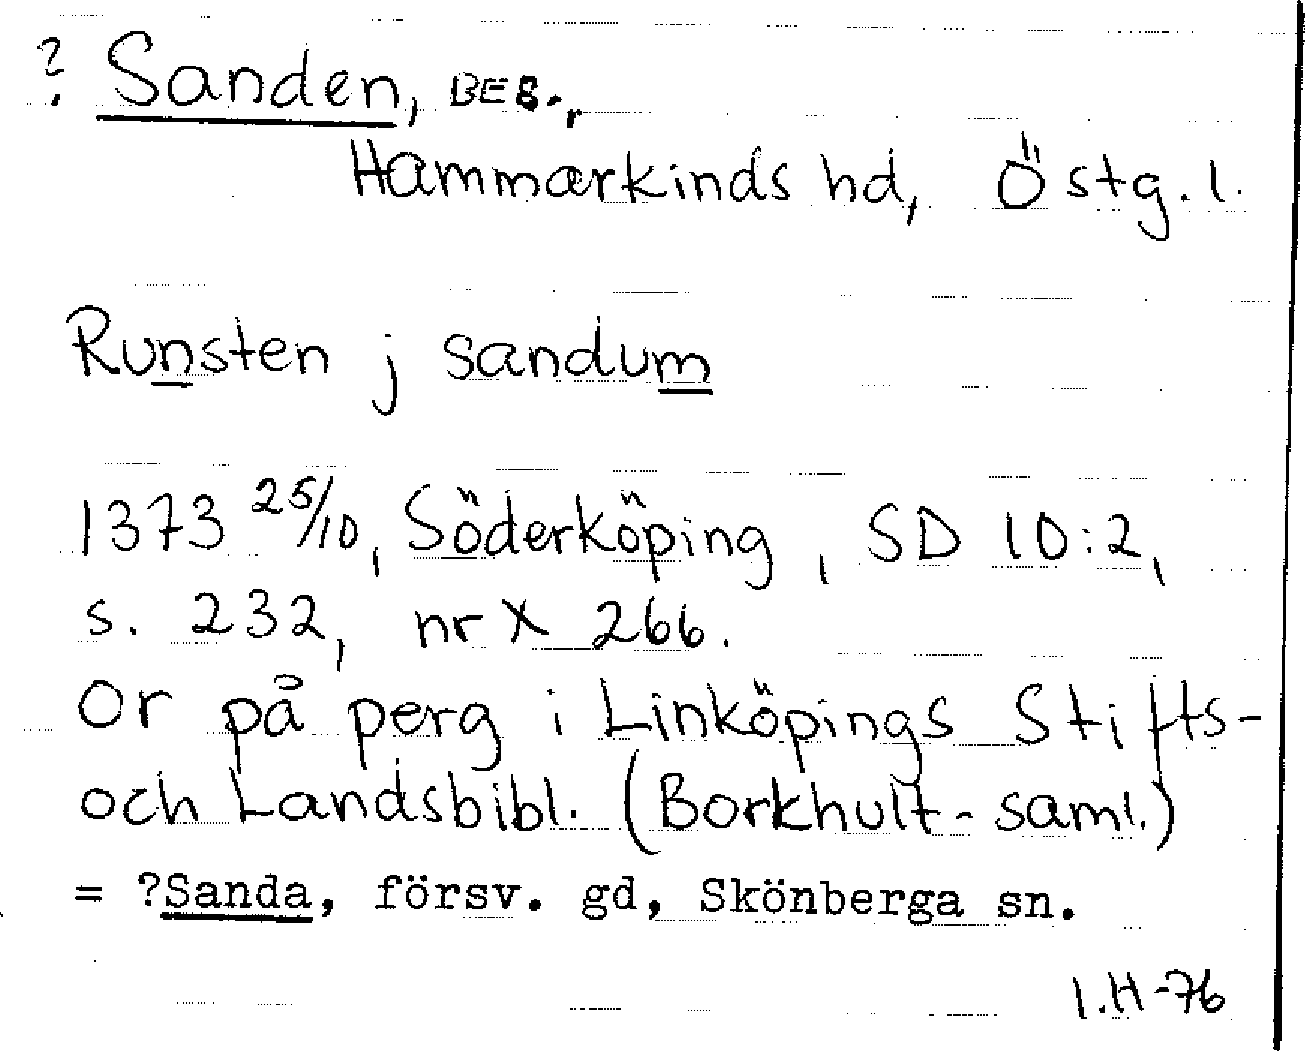 ? Sanden, BEB.,
Hammarkinds hd, Östg.l.
Runsten j sandum
1373 25/10, Söderköping, SD 10:2,
s. 232, nr X 266.
Or på perg i Linköpings Stifts-
och Landsbibl. (Borkhult-saml.)
= ?Sanda, försv. gd, Skönberga sn.
I.H-76